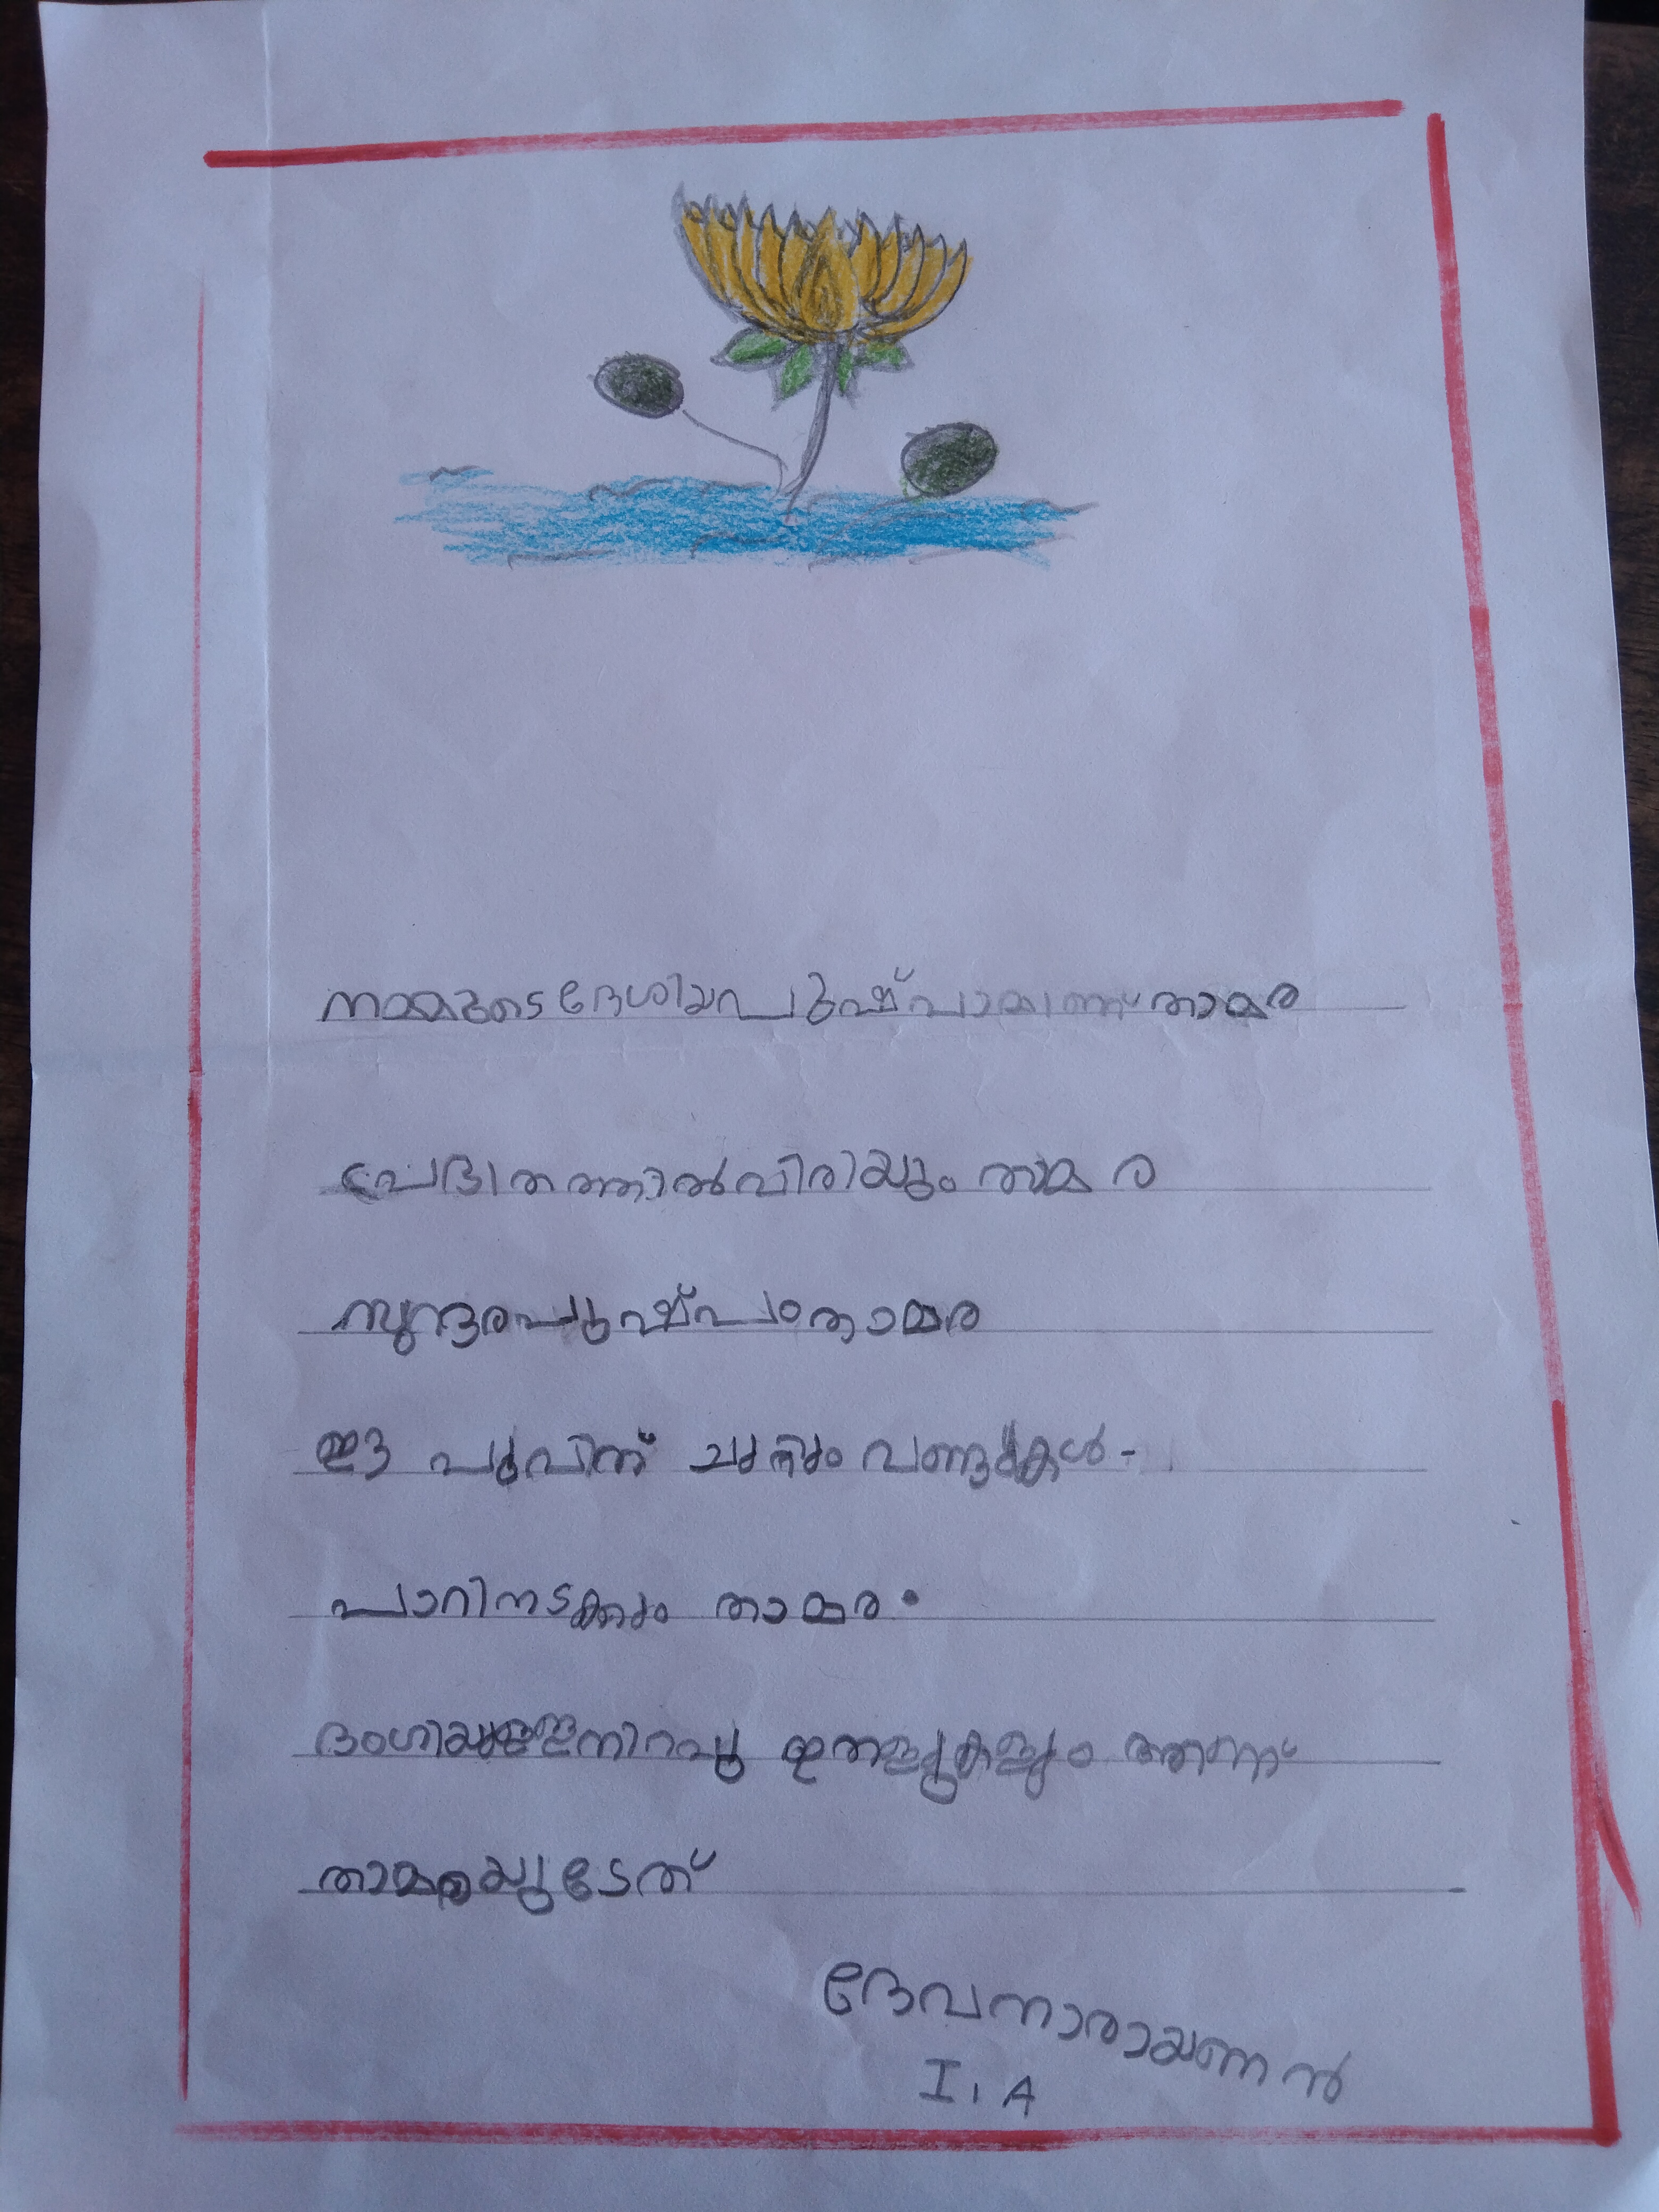 നമ്മുടെ ദേശിയ പുഷ്പമാണ് താമര
പ്രഭാതത്താൽ വിരിയും താമര
സുന്ദരപുഷ്പം താമര
ഈ പൂവിന് ചുറ്റും വണ്ടുകൾ -
പാറിനടക്കും താമര.
ഭംഗിയുള്ള നിറവും ഇതളുകളും ആണ്
താമരയുടേത്
ദേവനാരായണൻ
I, A